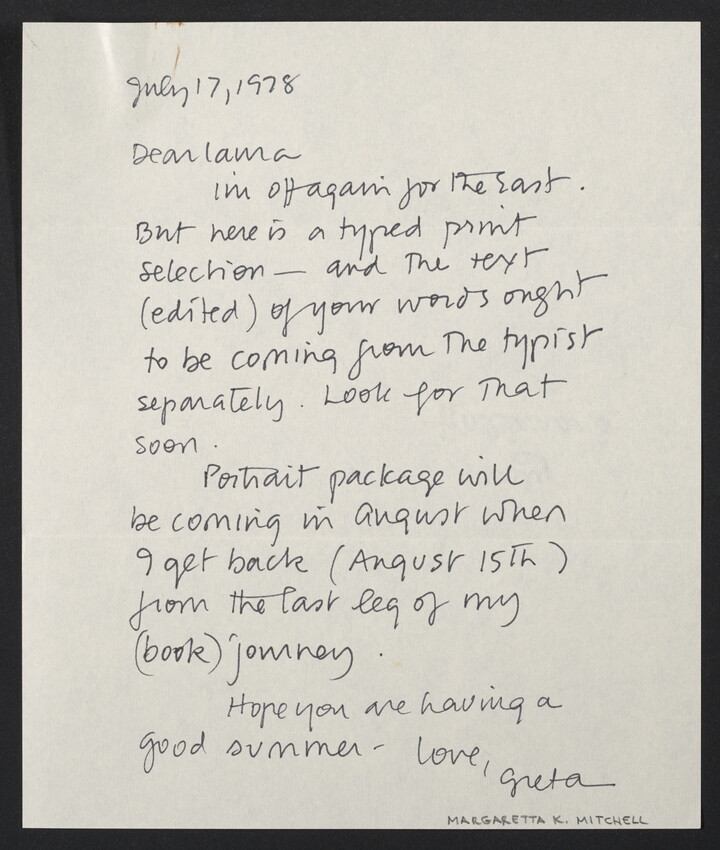 July 17, 1978
Dear Laura
I'm off again for the East.
But here is a typed print
selection — and the text
(edited) of your words ought
to be coming from the typist
separately. Look for that
soon.
Portrait package will
be coming in August when
I get back (August 15th)
from the last leg of my
(book) journey.
Hope you are having a
good summer - love,
Greta
MARGARETTA K. MITCHELL